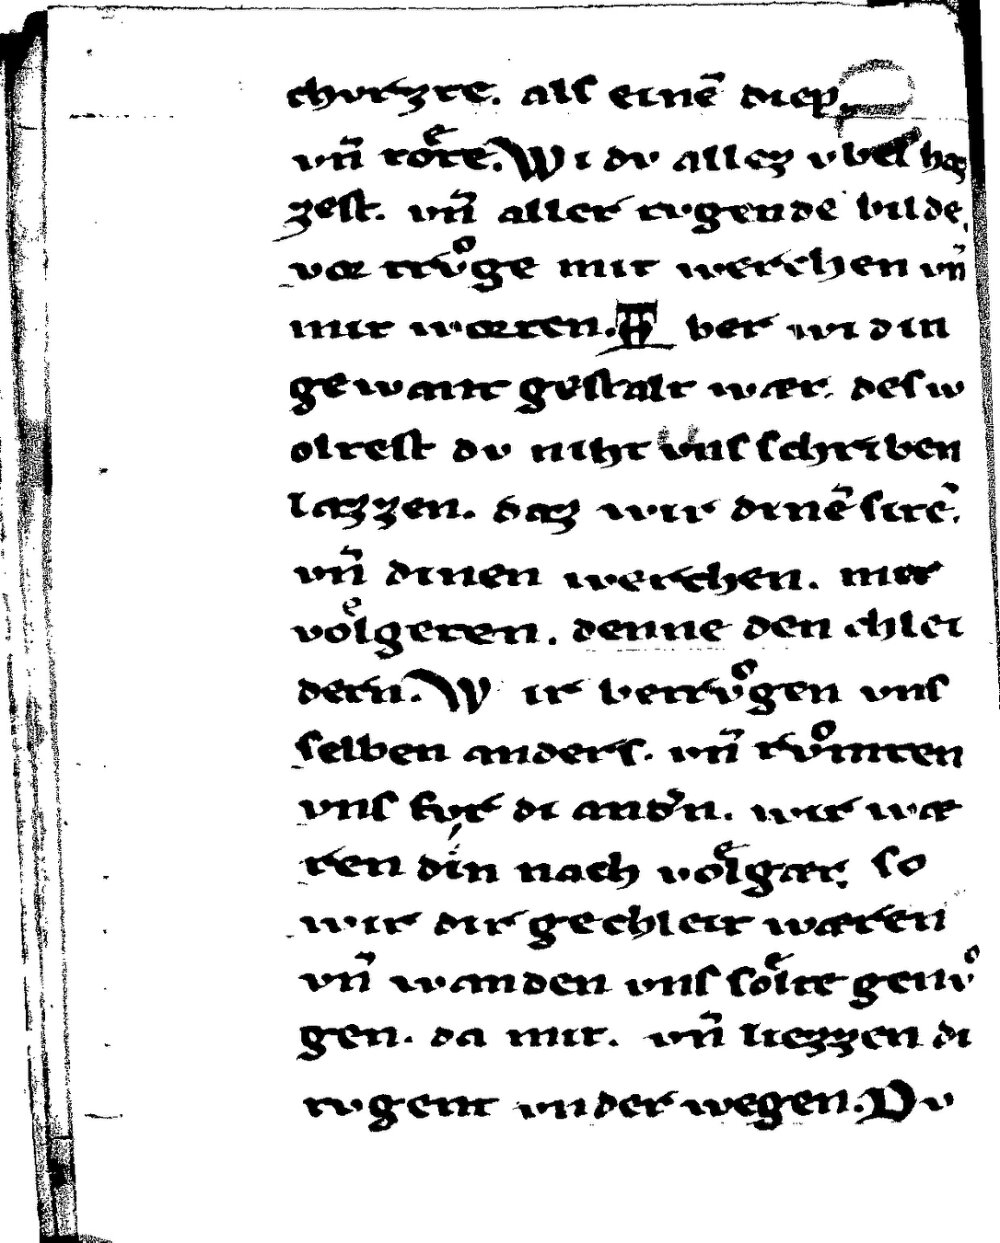 chvrzte. als einē diep.
vn̄ toͤte. Wi dv allez vbel haz
zest. vn̄ aller tvgende bilde.
vor trvͦge mit werchen vn̄
mit worten. Aber wi din
gewant gestalt wær. des w
oltest dv niht vns schriben
lazzen. daz wir dinē sitē.
vn̄ dinen werchen. mer
voͤlgeten. denne den chlei
dern. Wir betrvͦgen vns
selben anders. vn̄ rvͦmten
vns fvr di andˀn. wir wæ
ren din nach voͤlgær. so
wir dir gechleit wæren
vn̄ wanden vns soͤlte genvͦ
gen. da mit. vn̄ liezzen di
tvgent vnder wegen. Dv